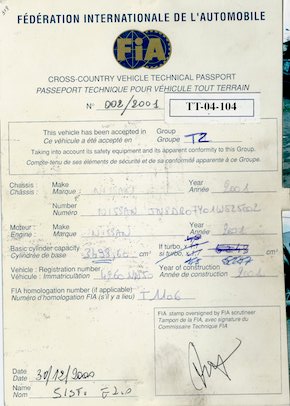 FÉDÉRATION INTERNATIONALE DE L'AUTOMOBILE
FiA
CROSS-COUNTRY VEHICLE TECHNICAL PASSPORT
PASSEPORT TECHNIQUE POUR VÉHICULE TOUT TERRAIN
N° 002/2001 TT-04-104
This vehicle has been accepted in Group
Ce véhicule a été accepté en Groupe T2
Taking into account its safety equipment and its apparent conformity to this Group.
Compte tenu de ses éléments de sécurité et de sa conformité apparente à ce Groupe.
Chassis : Make Year
Châssis : Marque : NISSAN Année : 2001
Number
Numéro : NISSAN
Moteur : Make Year
Engine : Marque : NISSAN Année : 2001
Basic cylinder capacity If turbo,
Cylindrée de base cm³ si turbo, cm³
Vehicle : Registration number Year of construction
Véhicule : Immatriculation Année de construction : 2001
FIA homologation number (if applicable)
Numéro d'homologation FIA (s'il y a lieu) T1106
FIA stamp oversigned by FIA scrutineer
Tampon de la FIA, avec signature du
Commissaire Technique FIA
Date
Date 30/12/2000
Name
Nom